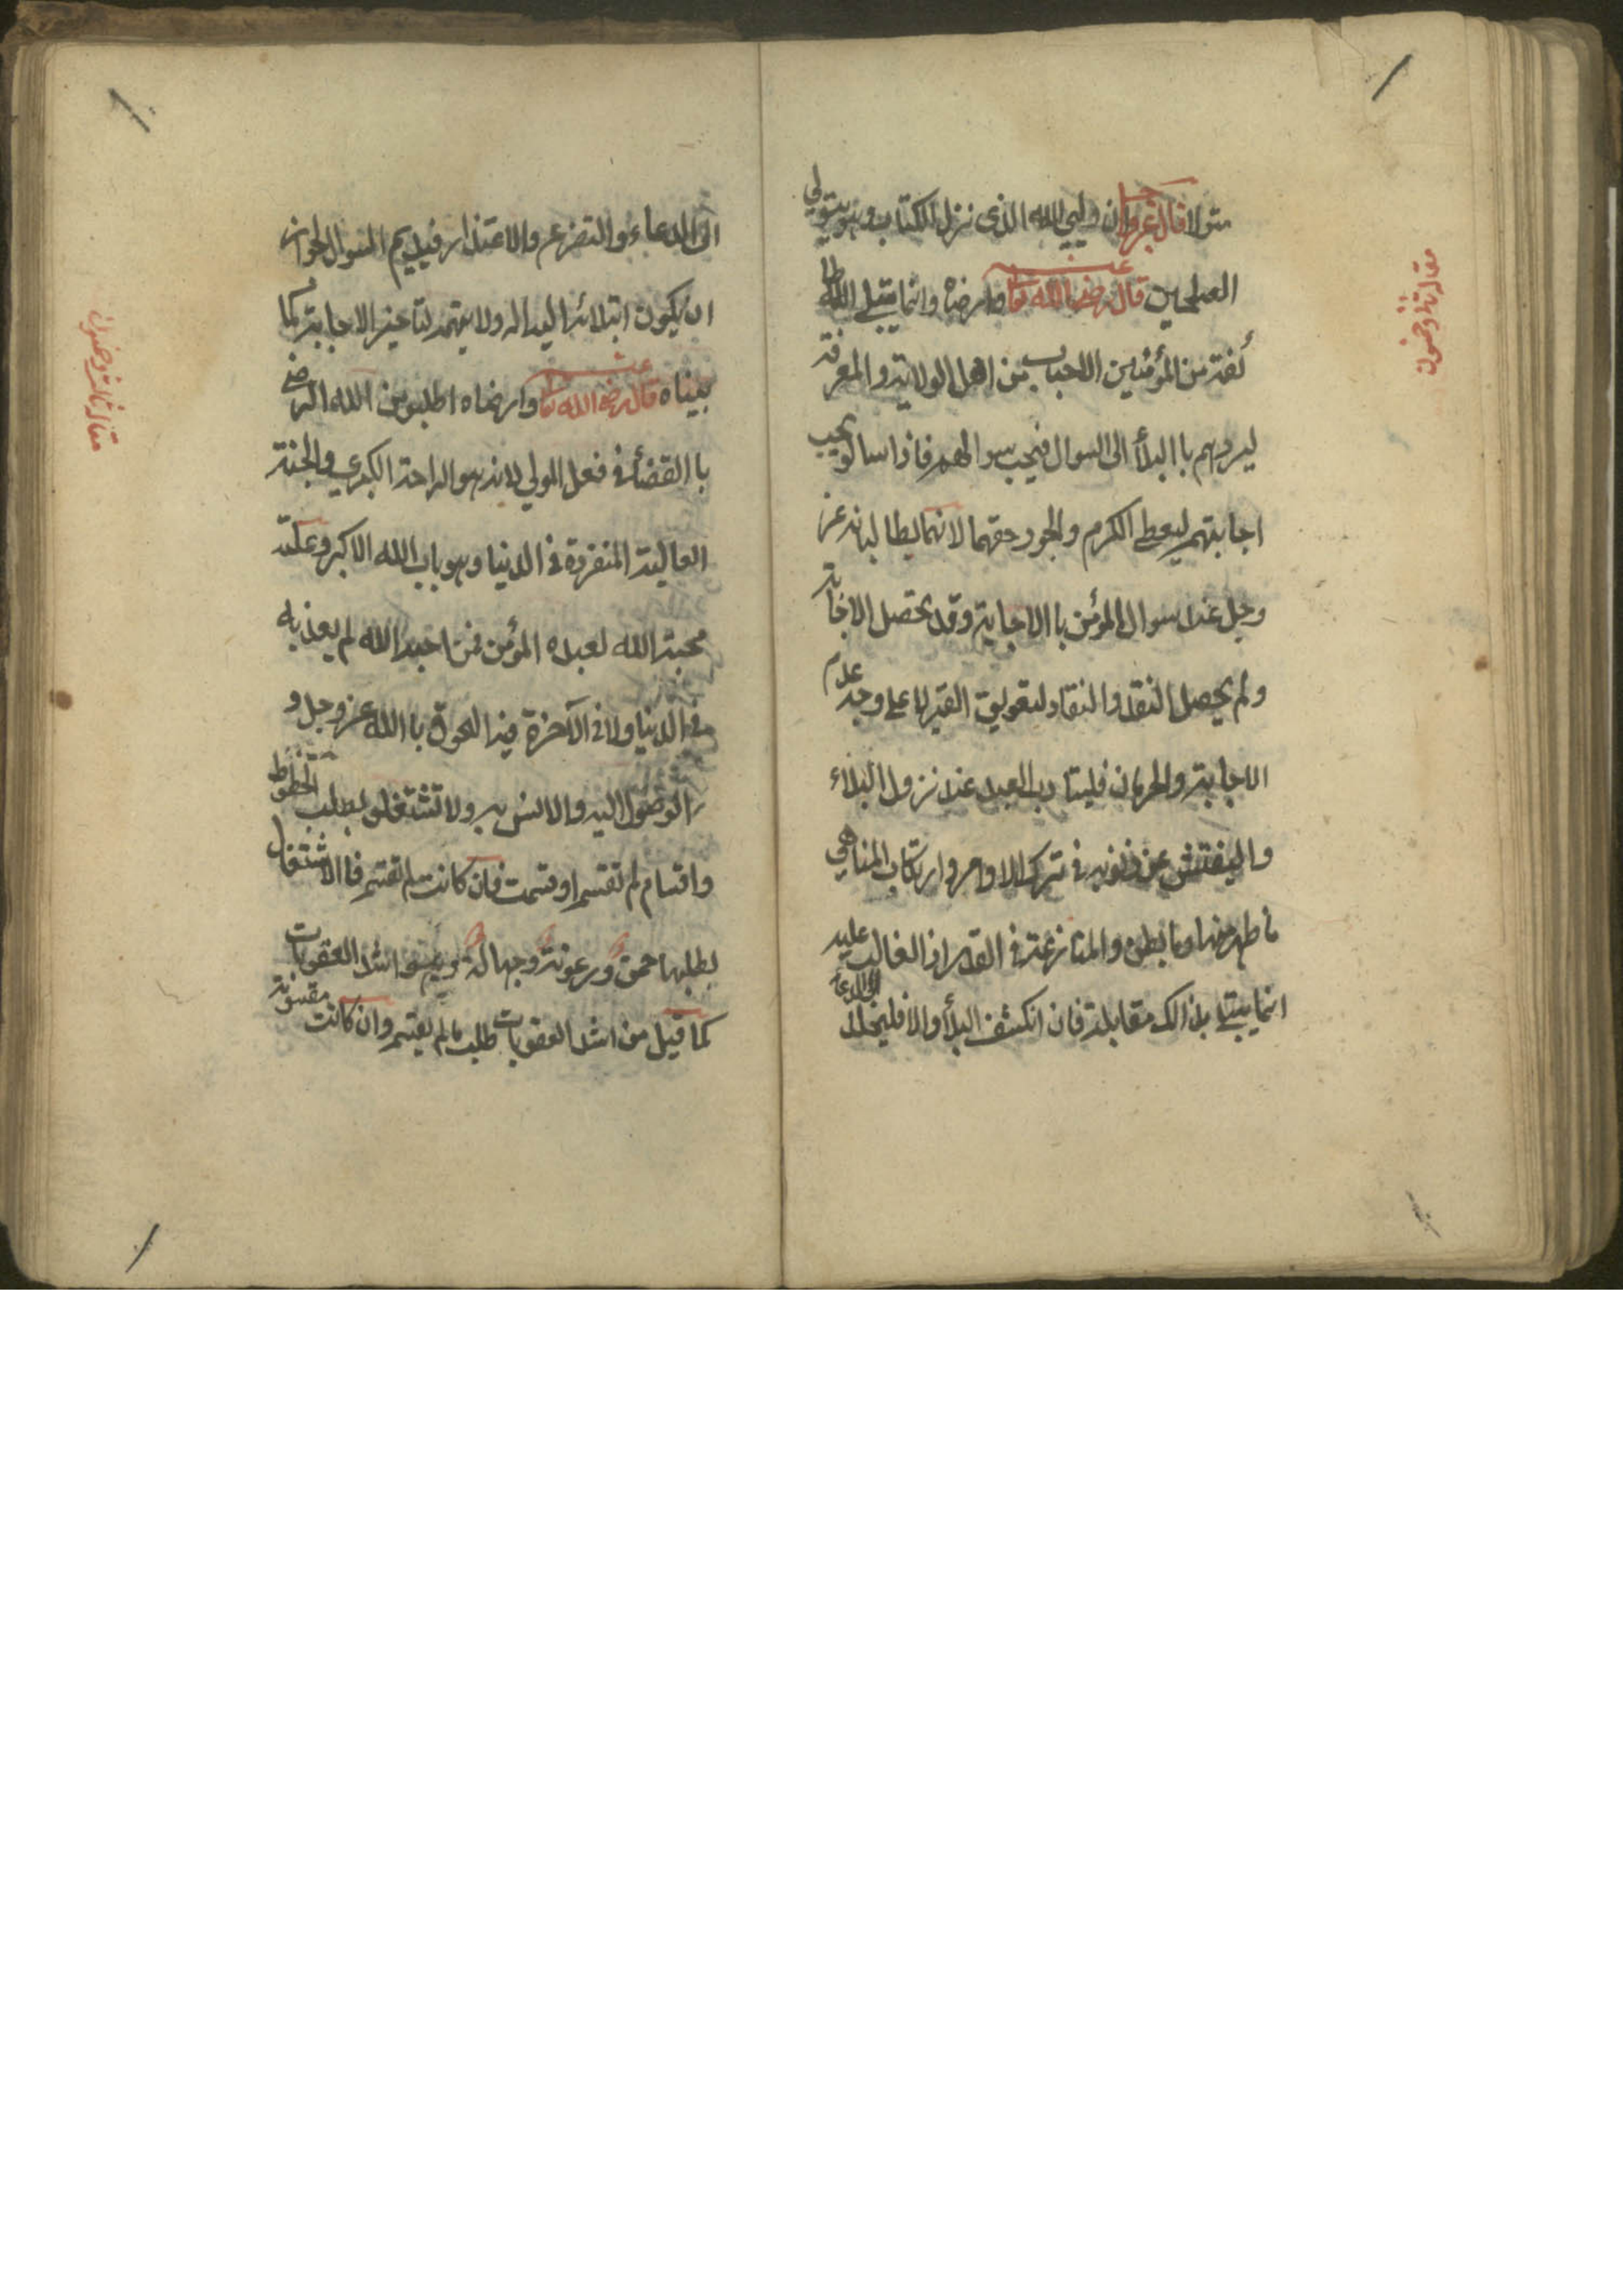 متولا قال عزوجل ان وليي الله الذى نزل الكتاب وهو يتولي
الصلحين قال رضى الله تعا عنه وارضاه وانما يبتلي الله طا
ئفة من المؤمنين الاحباب من اهل الولاية والمعرفة
ليردهم باالبلأ الى السوال فيحب سوالهم فاذا سالو يحب
اجابتهم ليعطي الكرم والجود حقهما لانهما يطالبانه عز
وجل عند سوال المؤمن باالاجابة وقد يحصل الاجابة
ولم يحصل النقد والنفاد لتعويق القدر لا على وجه عدم
الاجابة والحرمان فليتادب العبد عند نزول البلاء
واليفتش عن ذنوبه في ترك الاوامر وارتكاب المناهي
ما ظهر منها وما بطن والمنازعة فى القدر اذ الغالب عليه
انما يبتلي بذالك مقابلة فان انكشف البلأ والا فليخلد الى الدعاء
مقاله ثانى وخمسون
الى الدعاء والتضرع والاعتذار فيديم السوال لجواز
ان يكون ابتلائه اليساله ولا يتهمه لتاخير الاجابة لما
بيناه قال رضى الله تعا عنه وارضاه اطلبو من الله الرضى
باالقضأ فى فعل المولي لانه هو الراحة الكبرى والجنة
العالية المنفردة فى الدنيا وهو باب الله الاكبر وعلة
محبة الله لعبده المؤمن فمن احبه الله لم يعذبه
فى الدنيا ولا فى الآخرة فيه اللحوق باالله عز وجل و
الوصول اليه والانس به ولا تشتغلو بطلب الحظوظ
واقسام لم تقسم او قسمت فان كانت لم تقسم فاالاشتغال
بطلبها حمق ورعونة وجهالة وهو اشد العقوبات
كما قيل من اشد العقوبات طلب مالم يقسم وان كانت مقسومة
مقاله ثالث وخمسون